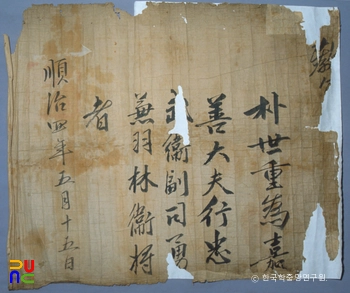 朴世重為嘉
善大夫行忠
武衛副司勇
蕪羽林衛将
者
順治四年五月十五日
PUNC
© 한국학중앙연구원